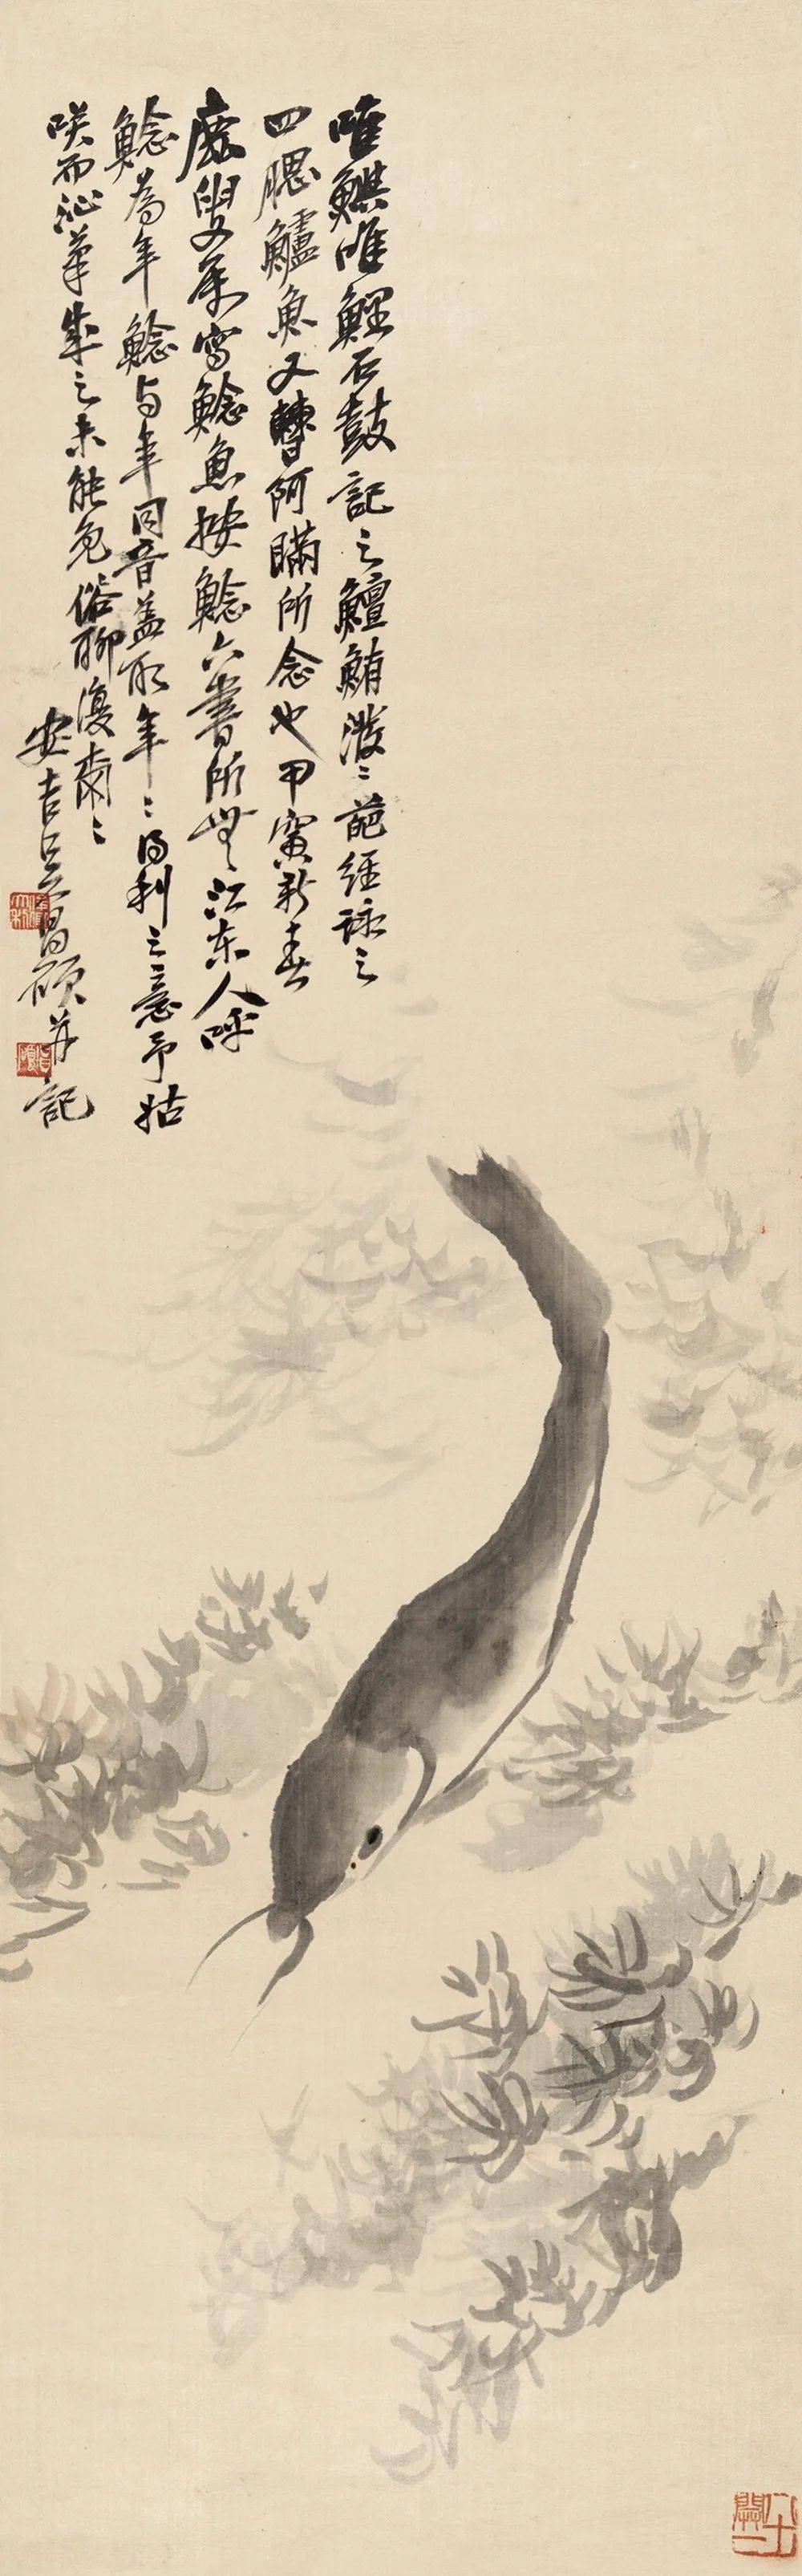 唯鱮唯鯉石鼓記之鱣鮪潑〻葩經詠之
四腮鱸魚又曹阿瞞所念也甲寅新春
鹿叟屬寫鯰魚按鯰六書所無江東人呼
鯰為年鯰與年同音蓋取年〻得利之意予姑
咲而沁筆成之未能免俗聊復爾〻
安吉吳昌碩并記